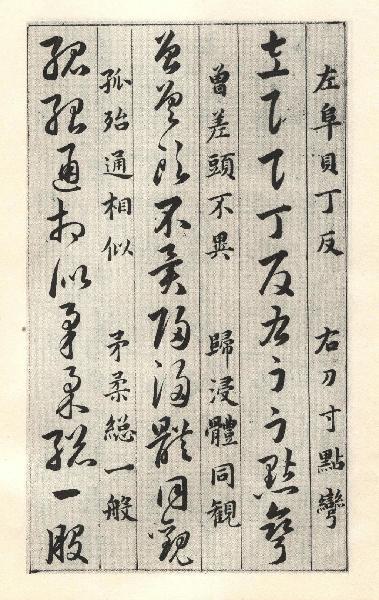 左阜貝丁反　右刀寸點彎
左阜貝丁反右刀寸點彎
曾差頭不異　歸浸體同観
曾差頭不異歸浸體同観
孤殆通相似　矛柔総一般
孤殆通相似矛柔総一般